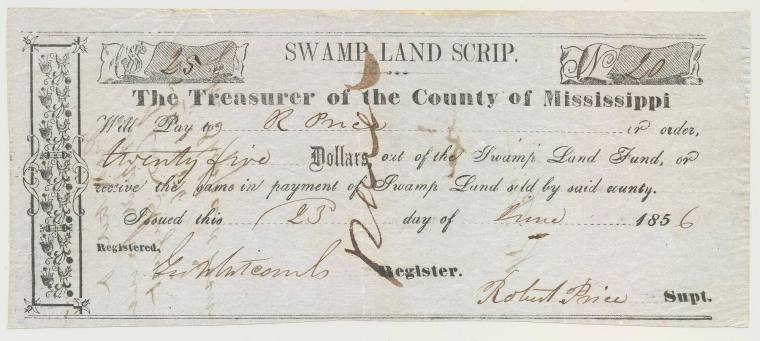 25
SWAMP LAND SCRIP.
No 20
The Treasurer of the County of Mississippi
Will Pay to R Price or order,
twenty five Dollars, out of the Swamp Land Fund, or
receive the same in payment of Swamp Land sold by said county.
Issued this 23 day of June 1856
Registered,
Geo Whitcomb Register.
Robert Price Supt.